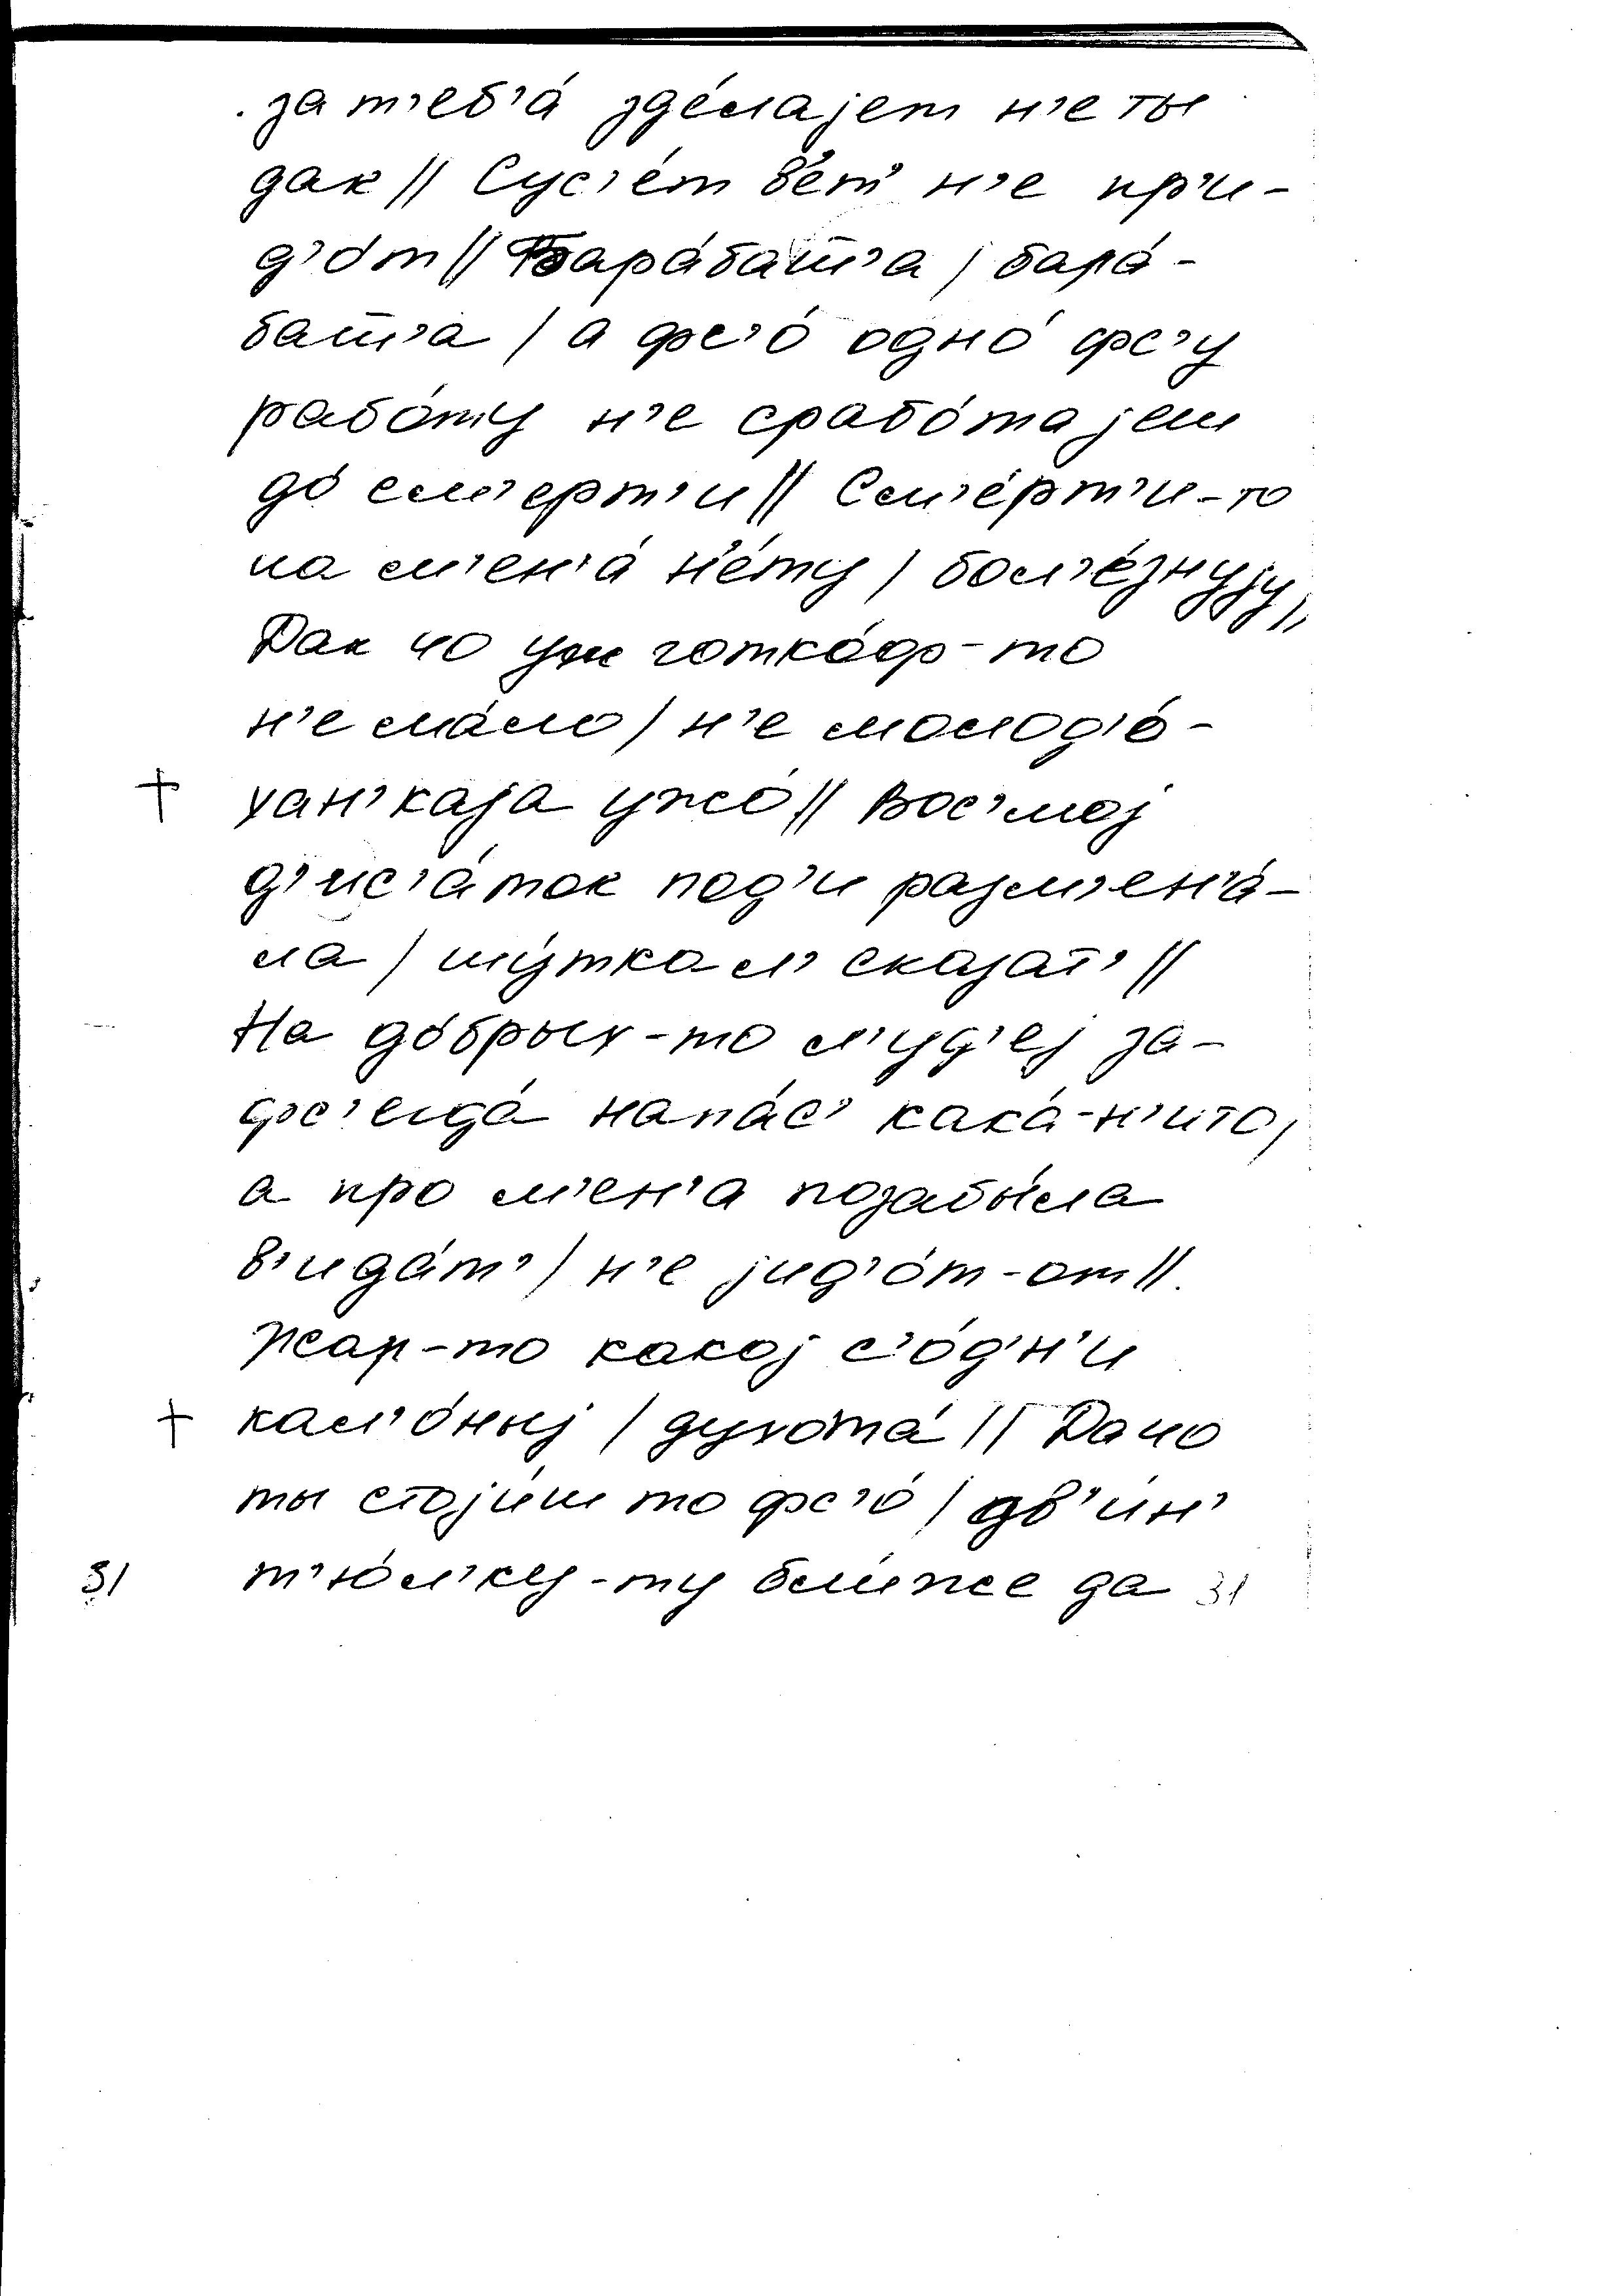 за т'еб'а́ зде́лајет н'е ты
дак // Сус'е́т в'е́т' н'е пр'и-
д'о́т // Бара́бат'а / бара́-
бат'а / а фс'о́ одно́ фс'у
рабо́ту н'е срабо́тајеш
до́ см'ерт'и // См'е́рт'и-то
на м'ен'а́ н'е́ту / бол'е́знују //
Дак чо уж готко́ф-то
н'е ма́ло / н'е молод'о́-
† хан'каја ужо́ // Вос'мој
д'ис'а́ток под'и разм'ен'а́-
ла / шу́тка л' сказат' //
На до́брых-то л'уд'еј за-
фс'егда́ напа́с' кака́-н'ито /
а про м'ен'а позабы́ла
в'ида́т' / н'е јид'о́т-от //
Жар-то какој с'о́д'н'и
† кал'о́ныј / духота́ // Да чо
ты стоји́ш то фс'о́ / дв'и́н'
31 т'у́л'ку-ту бли́же да 31